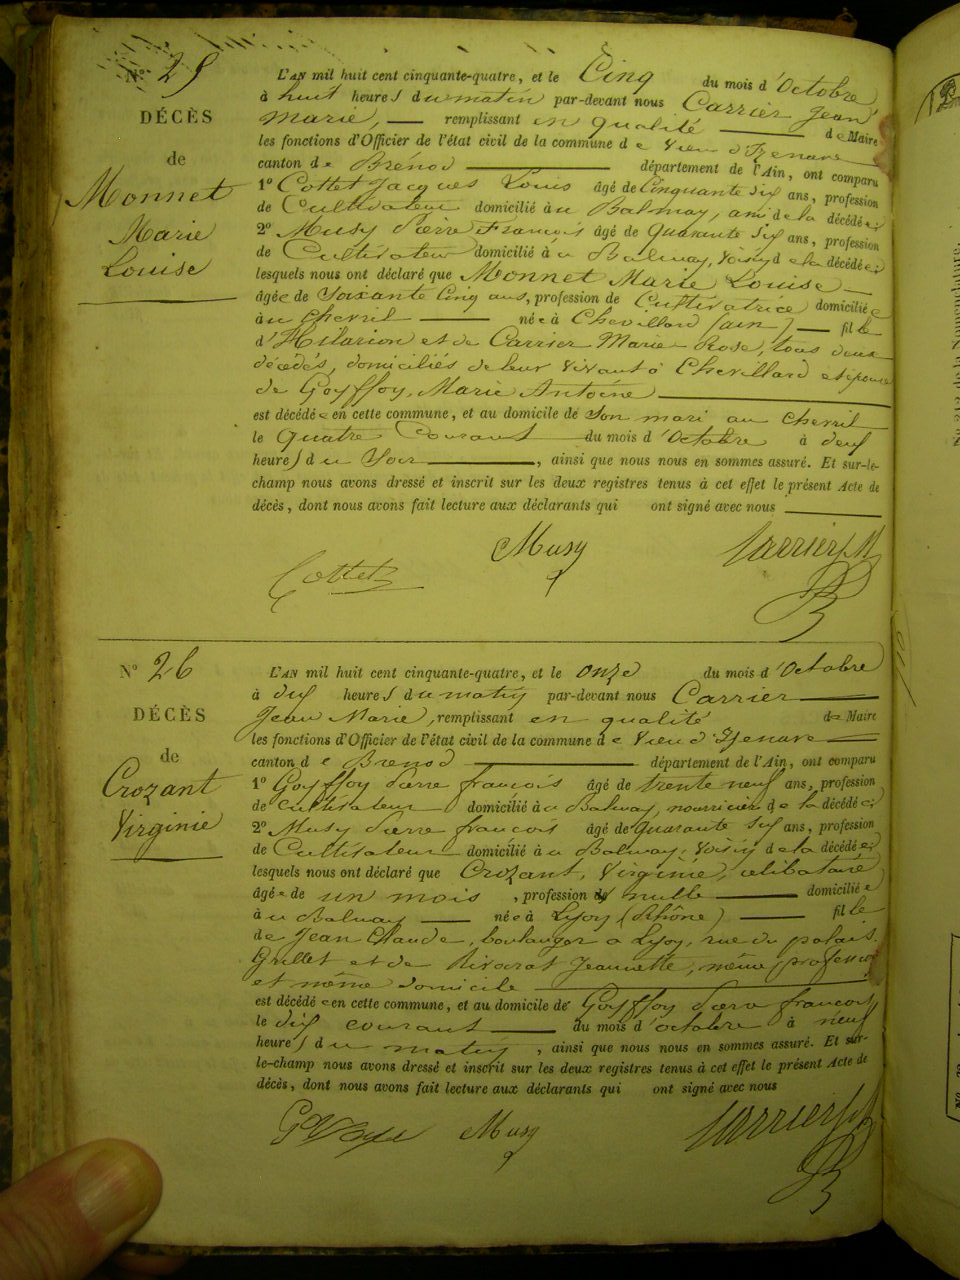 N° 25
DÉCÈS
de
Monnet
Marie
Louise
L'AN mil huit cent cinquante-quatre, et le Cinq du mois d'Octobre
à huit heures du matin par-devant nous Carrier Jean
Marie, remplissant en qualité de Maire
les fonctions d'Officier de l'état civil de la commune de Vieu d'Izenave
canton de Brénod département de l'Ain, ont comparu
1° Cottet Jacques Louis âgé de Cinquante six ans, profession
de Cultivateur domicilié à u Balmay, ami de la décédée;
2° Musy Pierre François âgé de quarante six ans, profession
de Cultivateur domicilié à u Balmay, voisin de la décédée;
lesquels nous ont déclaré que Monnet Marie Louise
âgée de Soixante Cinq ans, profession de Cultivatrice domiciliée
à u Chevril née à Chevillard (ain) fille
d'Hilarion et de Carrier Marie Rose, tous deux
décédés, domiciliés de leur vivant à Chevillard et épouse
de Goyffoy, Marie Antoine
est décédée en cette commune, et au domicile de son mari au Chevril
le quatre Courant du mois d'Octobre à deux
heures du Soir, ainsi que nous nous en sommes assuré. Et sur-le-
champ nous avons dressé et inscrit sur les deux registres tenus à cet effet le présent Acte de
décès, dont nous avons fait lecture aux déclarants qui ont signé avec nous
Cottet Musy Carrier JM
N° 26
DÉCÈS
de
Crozant
Virginie
L'AN mil huit cent cinquante-quatre, et le onze du mois d'Octobre
à dix heures du matin par-devant nous Carrier
Jean Marie, remplissant en qualité de Maire
les fonctions d'Officier de l'état civil de la commune de Vieu d'Izenave
canton de Brenod département de l'Ain, ont comparu
1° Goyffoy Pierre françois âgé de trente neuf ans, profession
de cultivateur domicilié à u Balmay, nourricier de la décédée;
2° Musy Pierre francois âgé de quarante six ans, profession
de Cultivateur domicilié à u Balmay, voisin de la décédée;
lesquels nous ont déclaré que Crozant, Virginie, célibataire
âgée de un mois, profession de nulle domiciliée
à u Balmay née à Lyon (Rhône) fille
de Jean Claude, boulanger a Lyon, rue du palais
Grillet et de Rivoirat Jeannette, même profession
et même domicile
est décédée en cette commune, et au domicile de Goyffoy Pierre francois
le dix courant du mois d'octobre à neuf
heures du matin, ainsi que nous nous en sommes assuré. Et sur-
le-champ nous avons dressé et inscrit sur les deux registres tenus à cet effet le présent Acte de
décès, dont nous avons fait lecture aux déclarants qui ont signé avec nous
Musy Carrier JM